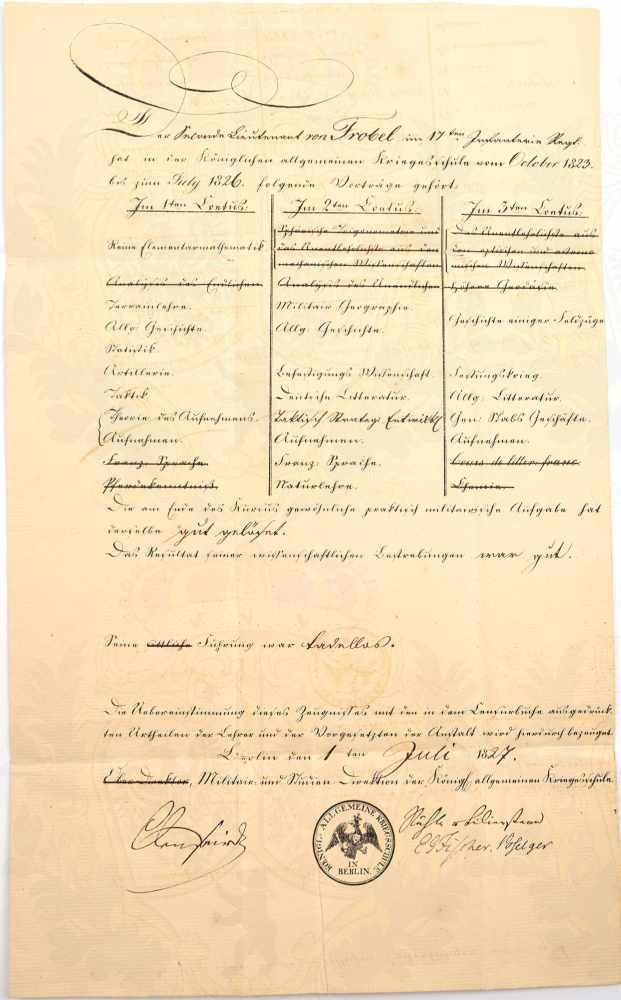 Der Seconde Lieutenant von Trobel im 17ten Infanterie Regt.
hat in der Königlichen allgemeinen Kriegesschule vom October 1823.
bis zum July 1826. folgende Vorträge gehört:
Im 1ten Coetus:
Reine Elementarmathematik
Analysis des Endlichen
Terrainlehre.
Allg: Geschichte.
Statistik.
Artillerie.
Taktik
Theorie des Aufnehmens.
Aufnehmen.
Franz: Sprache
Pferdekenntniss.
Im 2ten Coetus:
Sphärische Trigonometrie und
das Unentbehrlichste aus den
mechanischen Wissenschaften
Analysis des Unendlichen
Militair Geographie.
Allg: Geschichte.
Befestigungs Wissenschaft.
Deutsche Litteratur.
Taktisch Strateg: Entwickl
Aufnehmen.
Franz: Sprache.
Naturlehre.
Im 3ten Coetus:
Das Unentbehrlichste aus
den optischen und astrono
mischen Wissenschaften.
Höhere Geodäsie
Geschichte einiger Feldzüge
Festungskrieg.
Allg: Litteratur.
Gen: Stabs Geschäfte.
Aufnehmen.
Cours de litter: franc.
Chemie.
Die am Ende des Kursus gewöhnliche praktisch militairische Aufgabe hat
derselbe gut gelöset.
Das Resultat seiner wissenschaftlichen Bestrebungen war gut.
Seine sittliche Führung war tadellos.
Die Uebereinstimmung dieses Zeugnisses mit den in dem Censurbuche ausgedrück-
ten Urtheilen der Lehrer und der Vorgesetzten der Anstalt wird hierdurch bezeugt.
Berlin den 1ten Juli 1827.
Ober Direktor, Militair und Studien Direktion der Königl. allgemeinen Kriegesschule
Rühle v Lilienstern
KÖNIGL: ALLGEMEINE KRIEGSSCHULE
IN
BERLIN.
E G Fischer. Poselger